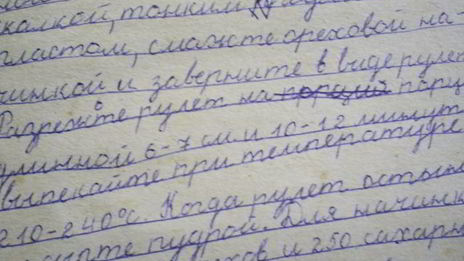 скалкой, тонким
пластом, смажте ореховой на-
чинкой и заверните в виде рулет
Разрежьте рулет на порций порц
длинной 6-7 см и 10-12 минут
выпекайте при температуре
210-240°С. Когда рулет остын
пудрой. Для начинк
и 250 сахарн